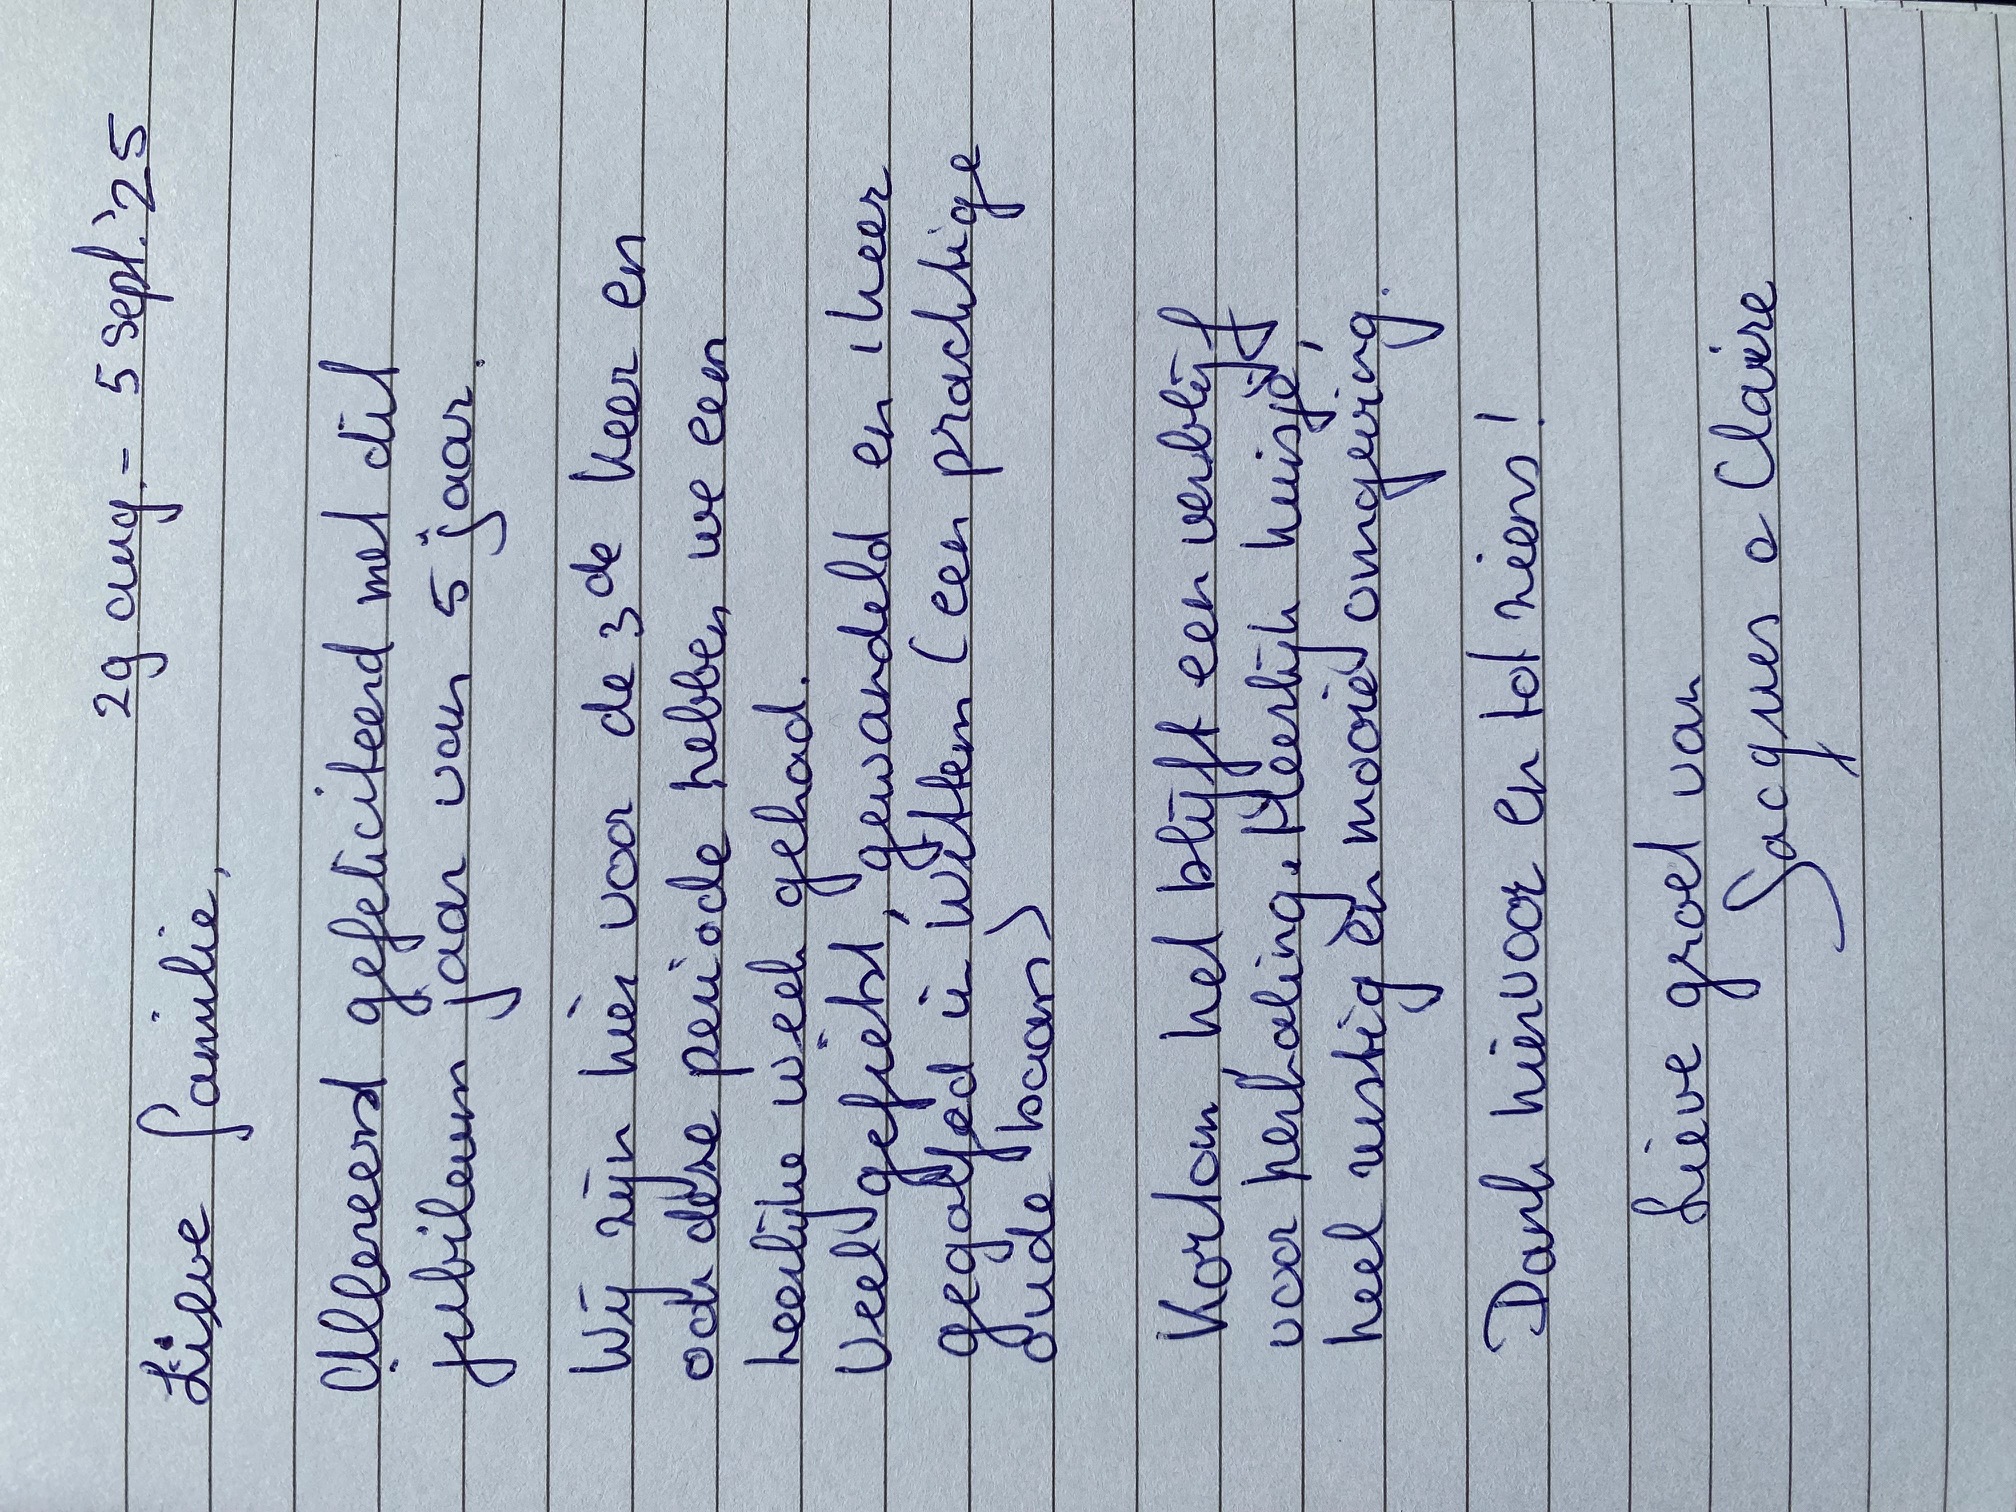 29 aug. - 5 sept. '25
Lieve familie,
Allereerst gefeliciteerd met dit
jubileum jaar van 5 jaar.
Wij zijn hier voor de 3de keer en
ook deze periode hebben we een
heerlijke week gehad.
Veel gefietst, gewandeld en 1 keer
gegolfed in Wittem (een prachtige
oude baan)
Kortom het blijft een verblijf
voor herhaling. Heerlijk huisje,
heel rustig en mooie omgeving.
Dank hiervoor en tot ziens!
Lieve groet van
Jacques & Claire